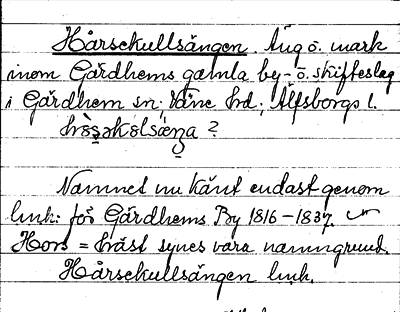 Hårsekullsängen. Äng o. mark
inom Gärdhems gamla by- o. skifteslag
i Gärdhem sn; Väne hd; Älfsborgs l.
Namnet nu känt endast genom
lmk: för Gärdhems By 1816-1837.
Hors = häst synes vara namngrund.
Hårsekullsängen lmk.